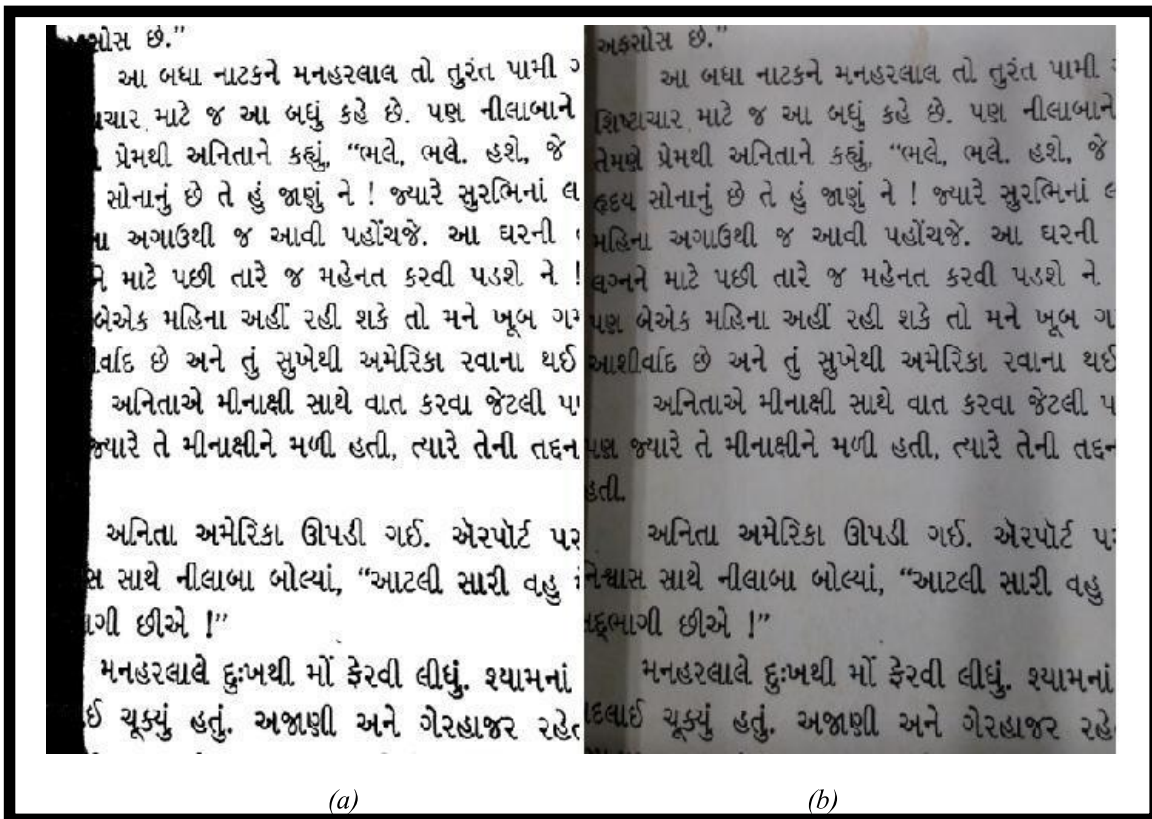 આ બધા નાટકને મનહરલાલ તો તુરંત પામી
માટે જ આ બધું કહે છે. પણ નીલાબાને
પ્રેમથી અનિતાને કહ્યું, “ભલે, ભલે. હશે, જે
સોનાનું છે તે હું જાણું ને ! જ્યારે સુરભિનાં લ
અગાઉથી જ આવી પહોંચજે. આ ઘરની
ને માટે પછી તારે જ મહેનત કરવી પડશે ને !
બેએક મહિના અહીં રહી શકે તો મને ખૂબ ગમ
ર્વાદ છે અને તું સુખેથી અમેરિકા રવાના થઈ
અનિતાએ મીનાક્ષી સાથે વાત કરવા જેટલી
જ્યારે તે મીનાક્ષીને મળી હતી, ત્યારે તેની તદ્દન
અનિતા અમેરિકા ઊપડી ગઈ. ઍરપૉર્ટ પર
સ સાથે નીલાબા બોલ્યાં, “આટલી સારી વહુ
ગી છીએ !”
મનહરલાલે દુઃખથી મોં ફેરવી લીધું. શ્યામનાં
ઈ ચૂક્યું હતું. અજાણી અને ગેરહાજર રહેત
(a)
અફસોસ છે.”
આ બધા નાટકને મનહરલાલ તો તુરંત પામી
શિષ્ટાચાર માટે જ આ બધું કહે છે. પણ નીલાબાને
તેમણે પ્રેમથી અનિતાને કહ્યું, “ભલે, ભલે. હશે, જે
હૃદય સોનાનું છે તે હું જાણું ને ! જ્યારે સુરભિનાં લ
મહિના અગાઉથી જ આવી પહોંચજે. આ ઘરની
લગ્નને માટે પછી તારે જ મહેનત કરવી પડશે ને
પણ બેએક મહિના અહીં રહી શકે તો મને ખૂબ ગ
આશીર્વાદ છે અને તું સુખેથી અમેરિકા રવાના થઈ
અનિતાએ મીનાક્ષી સાથે વાત કરવા જેટલી પ
પણ જ્યારે તે મીનાક્ષીને મળી હતી, ત્યારે તેની તદ્દન
હતી.
અનિતા અમેરિકા ઊપડી ગઈ. ઍરપૉર્ટ પર
નિશ્વાસ સાથે નીલાબા બોલ્યાં, “આટલી સારી વહુ
દ્ભાગી છીએ !”
મનહરલાલે દુઃખથી મોં ફેરવી લીધું. શ્યામનાં
દલાઈ ચૂક્યું હતું. અજાણી અને ગેરહાજર રહે
(b)